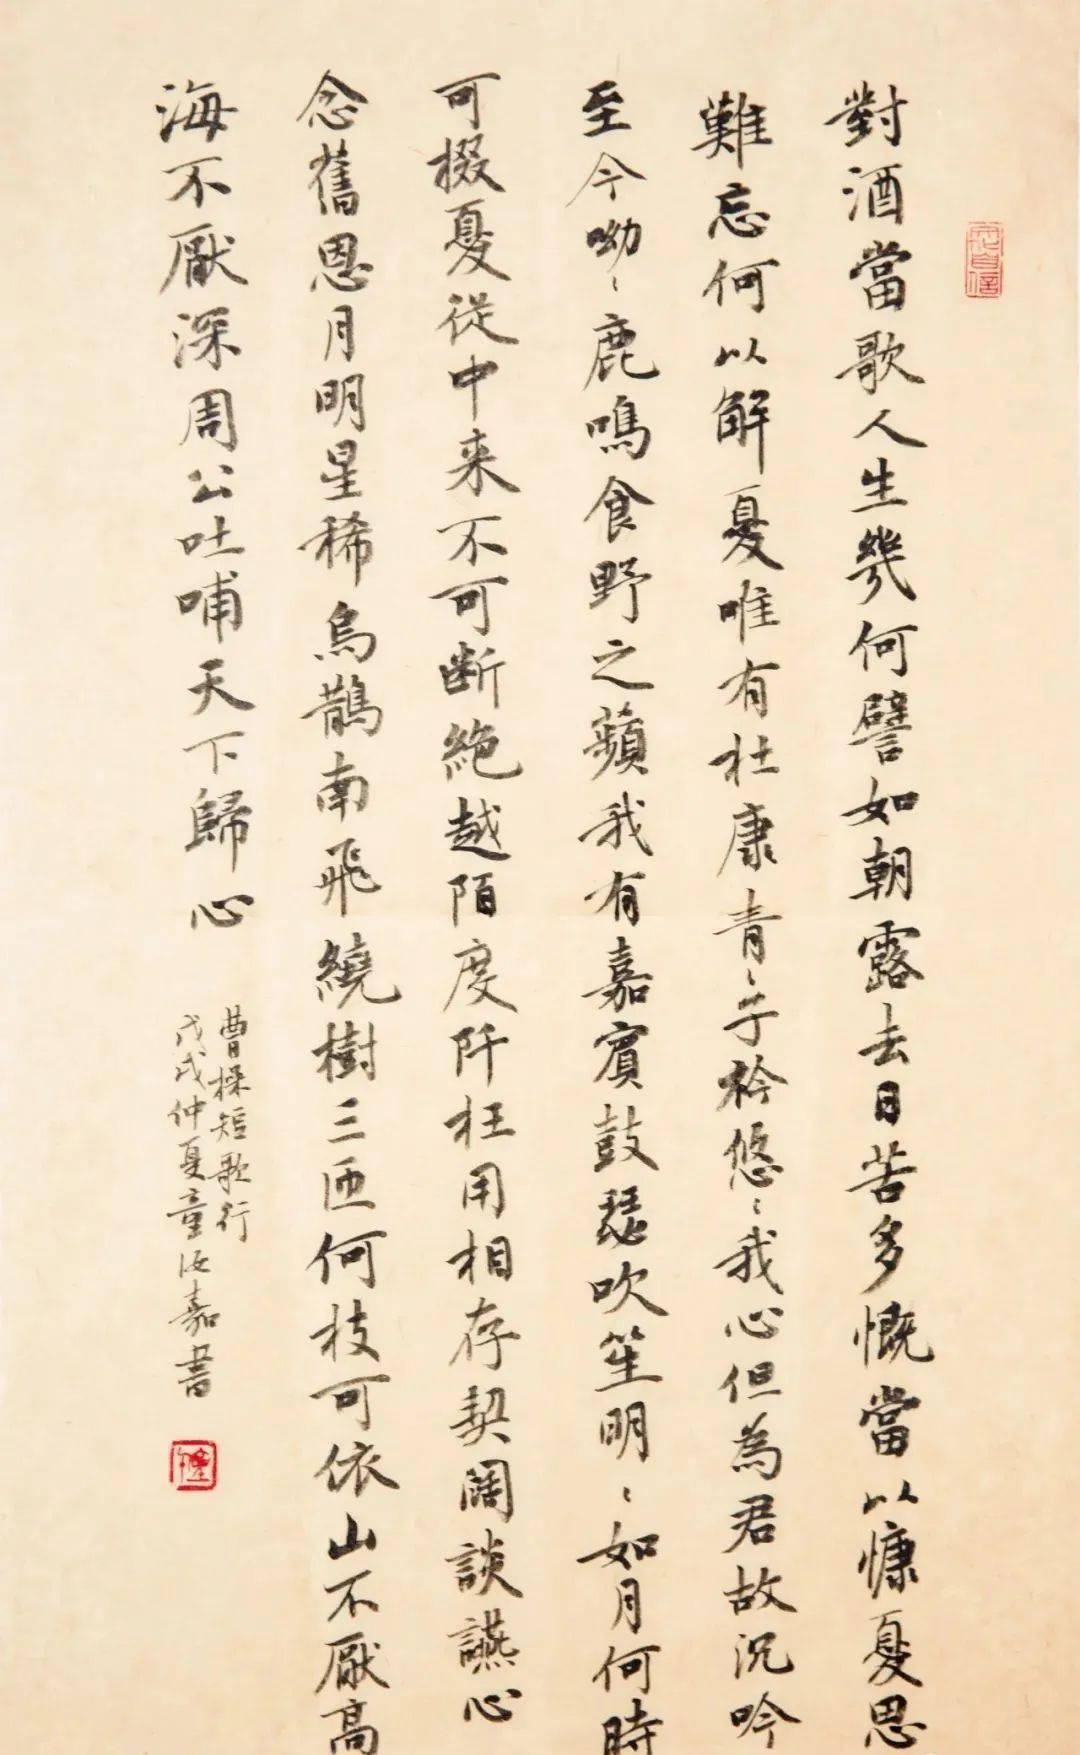 對酒當歌人生幾何譬如朝露去日苦多慨當以慷憂思
難忘何以解憂唯有杜康青〻子衿悠〻我心但為君故沉吟
至今呦〻鹿鳴食野之蘋我有嘉賓鼓瑟吹笙明〻如月何時
可掇憂從中来不可斷絶越陌度阡枉用相存契闊談讌心
念舊恩月明星稀烏鵲南飛繞樹三匝何枝可依山不厭高
海不厭深周公吐哺天下歸心
曹操短歌行
戊戌仲夏童汝嘉書